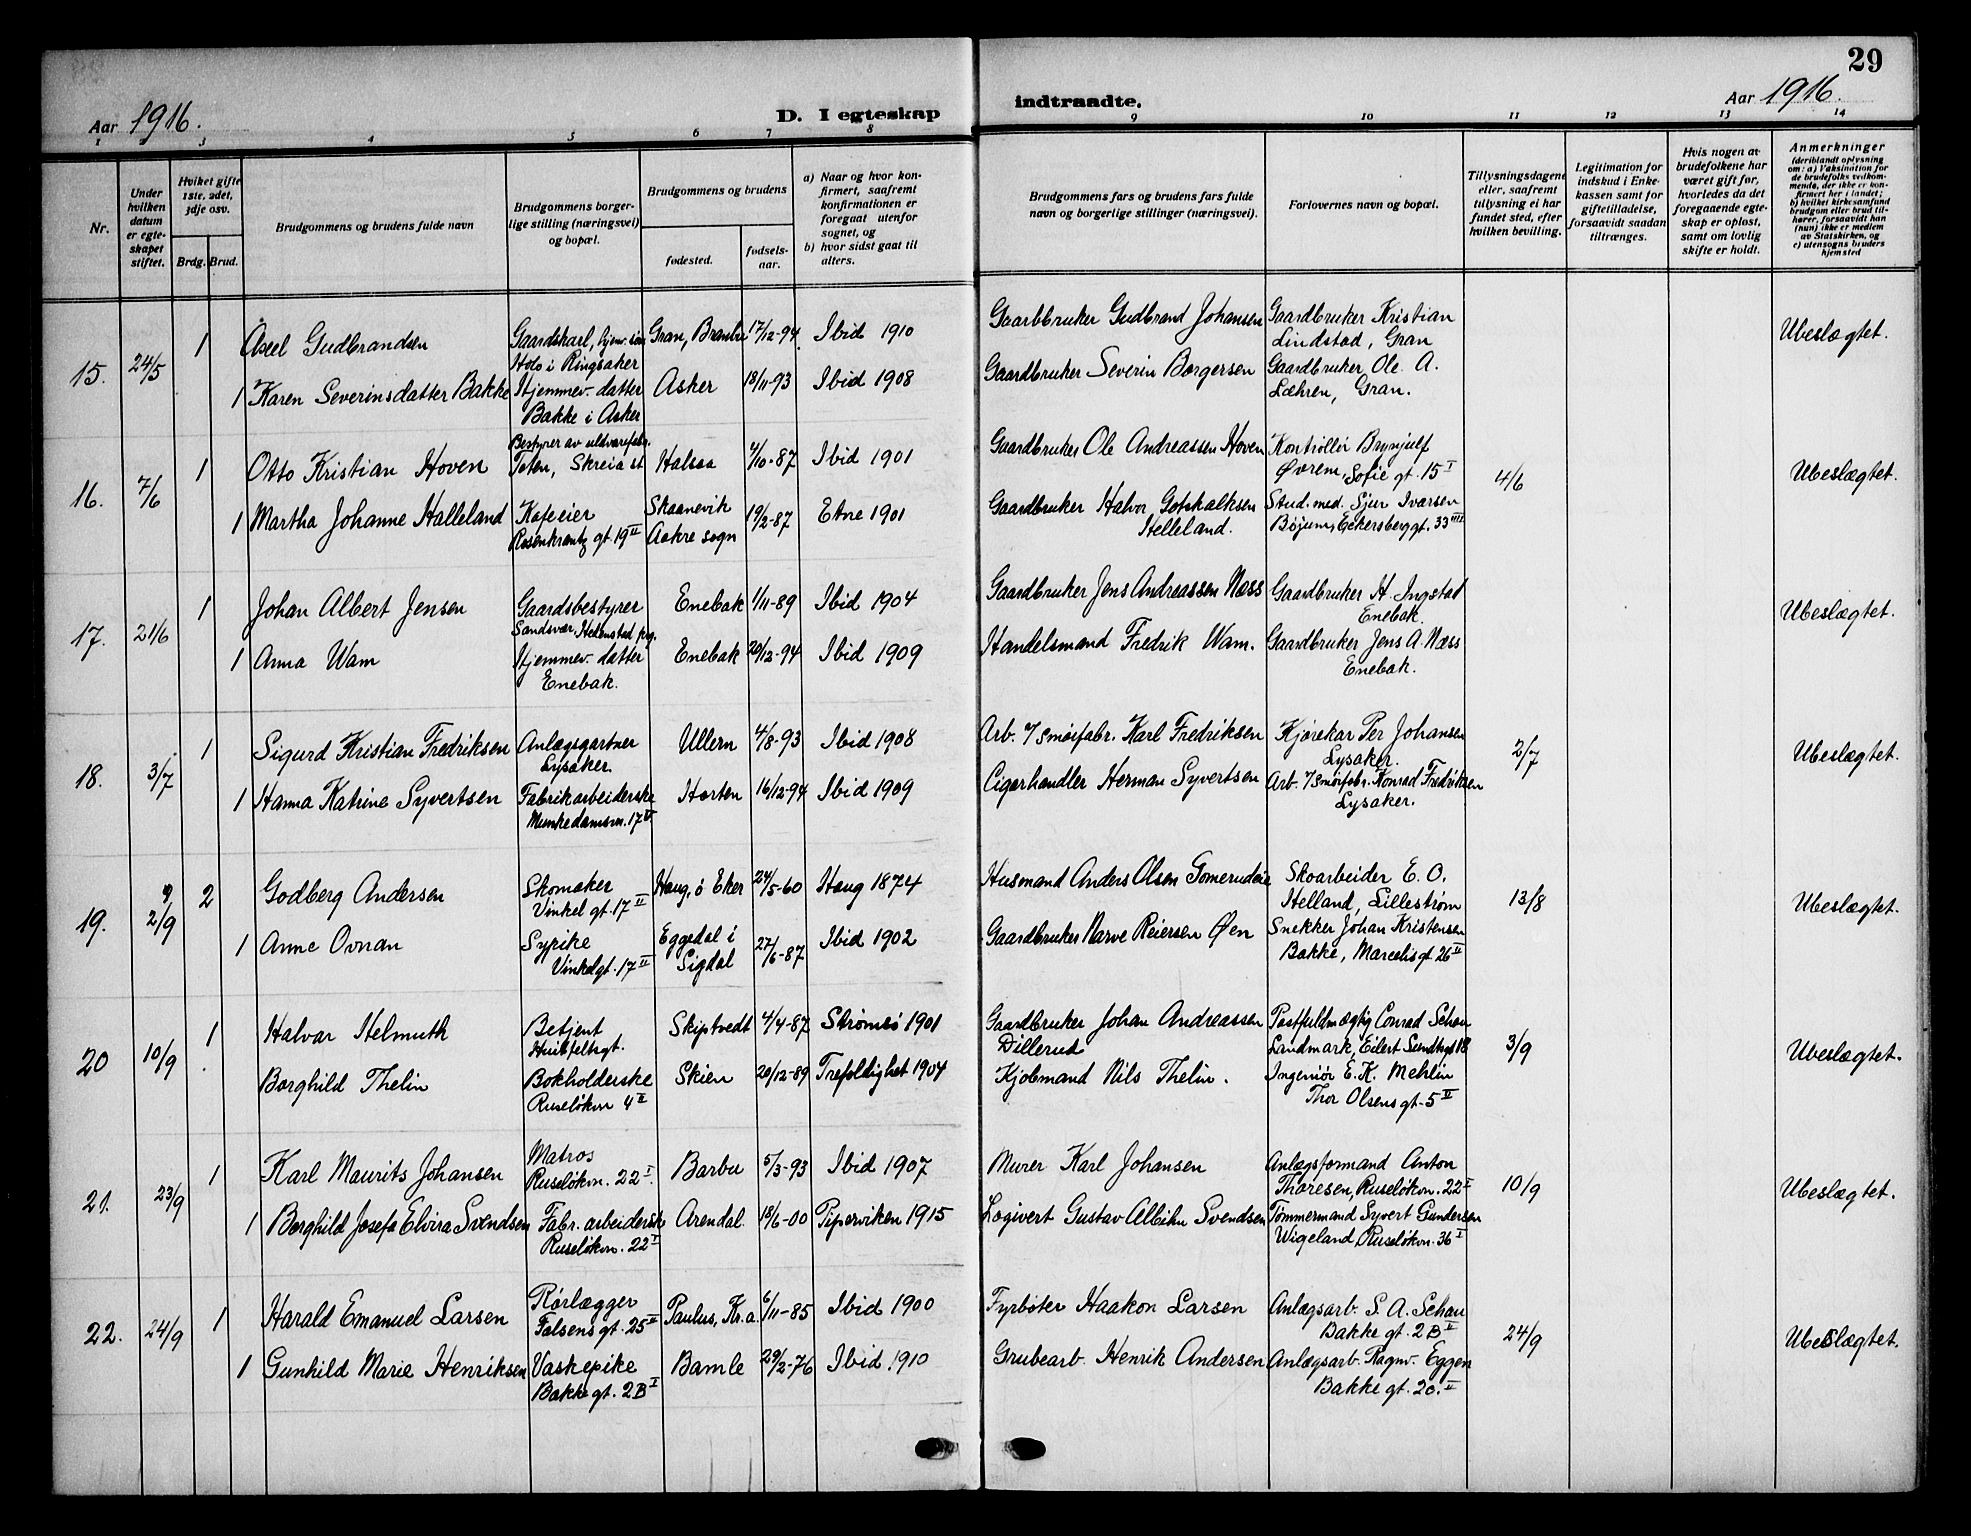 29
Aar 1916.
D. I egteskap indtraadte.
Aar 1916.
1 2 3 4 5 6 7 8 9 10 11 12 13 14
Nr.
Under hvilken datum er egteskapet stiftet.
Hvilket gifte 1ste, 2det, 3dje osv.
Brdg. Brud.
Brudgommens og brudens fulde navn
Brudgommens borgerlige stilling (næringsvei) og bopæl.
Brudgommens og brudens
fødested.
fødselsaar.
a) Naar og hvor konfirmert, saafremt konfirmationen er foregaat utenfor sognet, og
b) hvor sidst gaat til alters.
Brudgommens fars og brudens fars fulde navn og borgerlige stillinger (næringsvei).
Forlovernes navn og bopæl.
Tillysningsdagene eller, saafremt tillysning ei har fundet sted, efter hvilken bevilling.
Legitimation for indskud i Enkekassen samt for giftetilladelse, forsaavidt saadan tiltrænges.
Hvis nogen av brudefolkene har været gift før, hvorledes da det foregaaende egteskap er opløst, samt om lovlig skifte er holdt.
Anmerkninger
(deriblandt oplysning om: a) Vaksination for de brudefolks vedkommende, der ikke er konfirmert her i landet; b) hvilket kirkesamfund brudgom eller brud tilhører, forsaavidt han (hun) ikke er medlem av Statskirken, og c) utensogns bruders hjemsted
15. 24/5 1 Axel Gudbrandsen Gaardskarl, hjemv. søn Gran, Brandbu 17/12-94. Ibid 1910 Gaardbruker Gudbrand Johansen Gaardbruker Kristian Ubeslægtet.
Holo i Ringsaker Lindstad, Gran
1 Karen Severinsdatter Bakke Hjemmev. datter Asker 18/11-93 Ibid 1908 Gaardbruker Severin Borgersen Gaardbruker Ole A.
Bakke i Asker Læhren, Gran.
16. 7/6 1 Otto Kristian Hoven Bestyrer av uldvarefabr. Halsaa 4/10-87 Ibid 1901 Gaardbruker Ole Andreassen Hoven Kontrollør Brynjulf 4/6 Ubeslægtet.
Toten, Skreia st Øvrem, Sofie gt. 15 I
1 Martha Johanne Halleland Kafeeier Skaanevik 19/2-87 Etne 1901 Gaardbruker Halvor Gotskalksen Stud. med. Sjur Ivarsen
Rosenkrantz gt. 19 II Aakre sogn Helleland. Bøjum, Eckersberg gt. 33 III
17. 21/6 1 Johan Albert Jensen Gaardsbestyrer Enebak 1/11-89 Ibid 1904 Gaardbruker Jens Andreassen Næss Gaardbruker H. Ingstad Ubeslægtet.
Sandsvær, Hedenstad prg. Enebak.
1 Anna Wam Hjemmev. datter Enebak 20/12-94 Ibid 1909 Handelsmand Fredrik Wam. Gaardbruker Jens A. Næss
Enebak. Enebak.
18. 3/7 1 Sigurd Kristian Fredriksen Anlægsgartner Ullern 4/8-93 Ibid 1908 Arb. v/ smørfabr. Karl Fredriksen Kjørekar Per Johansen 2/7 Ubeslægtet.
Lysaker. Lysaker.
1 Hanna Katrine Syvertsen Fabrikarbeiderske Horten 16/12-94 Ibid 1909 Cigarhandler Herman Syvertsen Arb. v/ smørfabr. Konrad Fredriksen
Munkedamsvn. 17 V. Lysaker.
19. 2/9 2 Godberg Andersen Skomaker Haug, ø Eker 24/5-60 Haug 1874 Husmand Anders Olsen Gomerudeie Skoarbeider E. O. 13/8 Ubeslægtet.
Vinkel gt. 17 II Helland, Lillestrøm
1 Anne Ovnan Sypike Eggedal i 27/6-87 Ibid 1902 Gaardbruker Narve Reiersen Øen Snekker Johan Kristensen
Vinkelgt. 17 II Sigdal Bakke, Marcelis gt 26 II
20 10/9 1 Halvar Helmuth Betjent Skiptvedt 4/4-87 Strømsø 1901 Gaardbruker Johan Andreassen Postfuldmægtig Conrad Schou 3/9 Ubeslægtet.
Huitfeltsgt. Dillerud Landmark, Eilert Sundts gt 18
Borghild Thelin Bokholderske Skien 20/12-89 Trefoldighet 1904 Kjøbmand Nils Thelin. Ingeniør E. K. Mehlin
Ruseløkvn 4 II Thor Olsens gt. 5 II
21. 23/9 1 Karl Maurits Johansen Matros Barbu 5/3-93 Ibid 1907 Murer Karl Johansen Anlægsformand Anton 10/9 Ubeslægtet.
Ruseløkvn. 22 I. Thoresen, Ruseløkvn. 22 I
1 Borghild Josefa Elvira Svendsen Fabr. arbeiderske Arendal. 18/6-00 Piperviken 1915 Logivert Gustav Albihn Svendsen Tømmermand Syvert Gundersen
Ruseløkvn. 22 I Wigeland, Ruseløkvn. 36 I
22. 24/9 1 Harald Emanuel Larsen Rørlægger Paulus, Kr.a. 6/11-85 Ibid 1900 Fyrbøter Haakon Larsen Anlægsarb. S. A. Schau 24/9 Ubeslægtet.
Falsens gt. 25 II Bakke gt. 2B II
1 Gunhild Marie Henriksen Vaskepike Bamle 29/2-76 Ibid 1910 Grubearb. Henrik Andersen Anlægsarb. Ragnv. Eggen
Bakke gt. 2B I Bakke gt. 2c. II